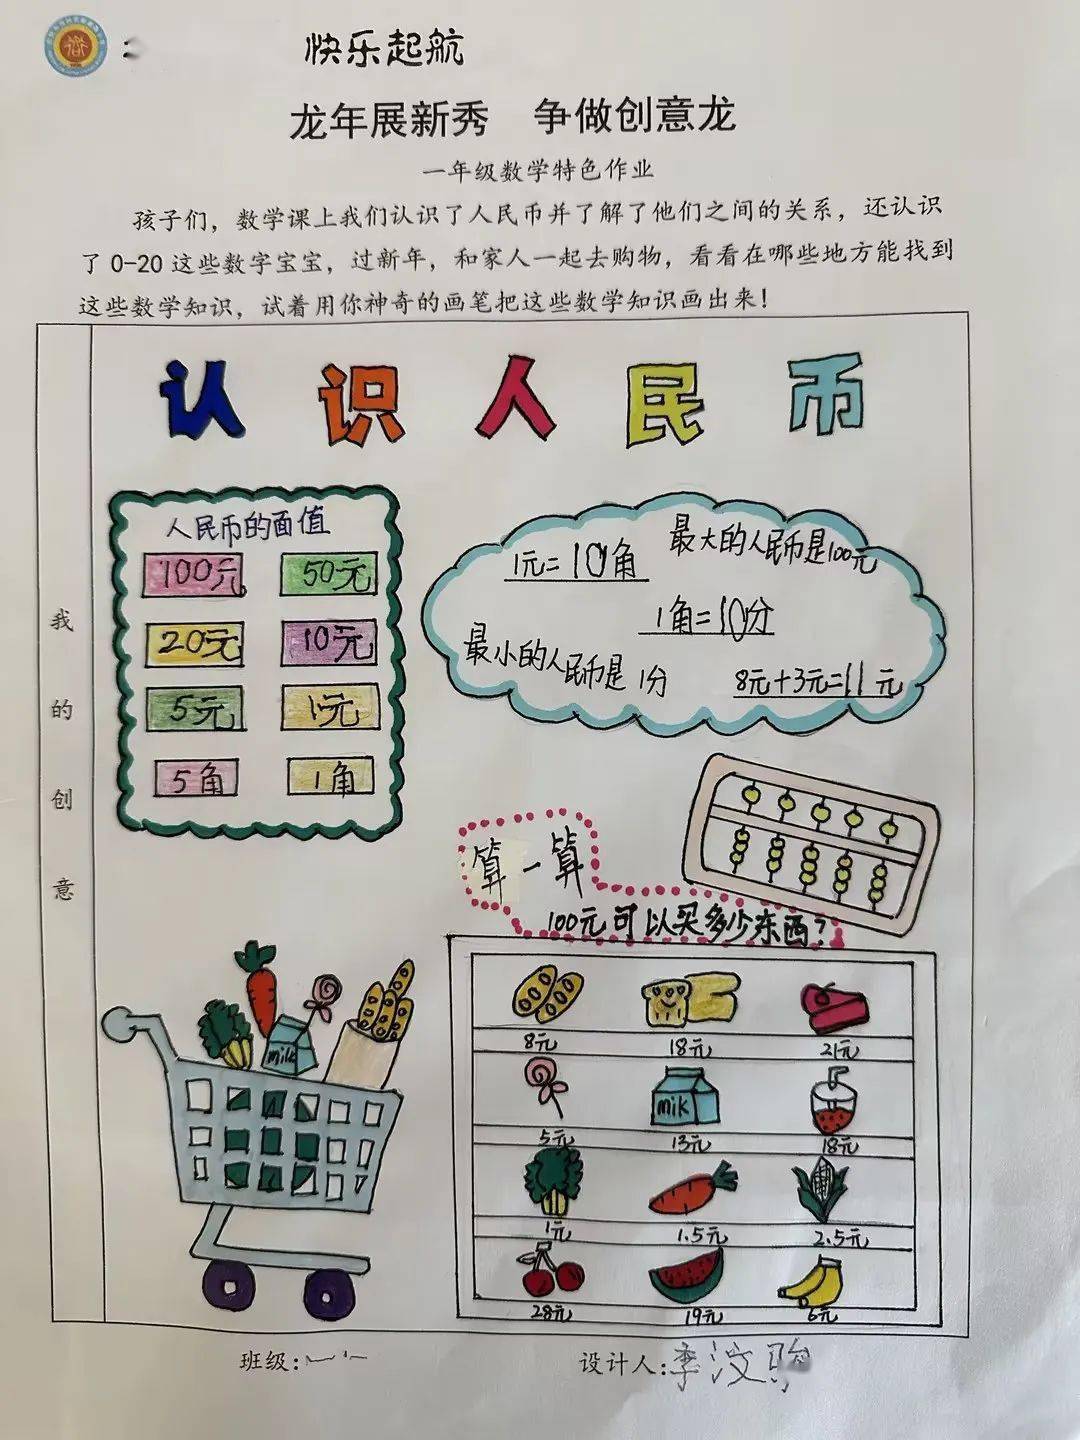 快乐起航
龙年展新秀 争做创意龙
一年级数学特色作业
孩子们，数学课上我们认识了人民币并了解了他们之间的关系，还认识
了 0-20 这些数字宝宝，过新年，和家人一起去购物，看看在哪些地方能找到
这些数学知识，试着用你神奇的画笔把这些数学知识画出来！
我的创意
认识人民币
人民币的面值
100元 50元
20元 10元
5元 1元
5角 1角
最大的人民币是100元
1元=10角
1角=10分
最小的人民币是1分
8元+3元=11元
算一算
100元可以买多少东西?
milk
8元 18元 21元
mik
5元 13元 18元
1元 1.5元 2.5元
28元 19元 6元
班级:
设计人:李汶